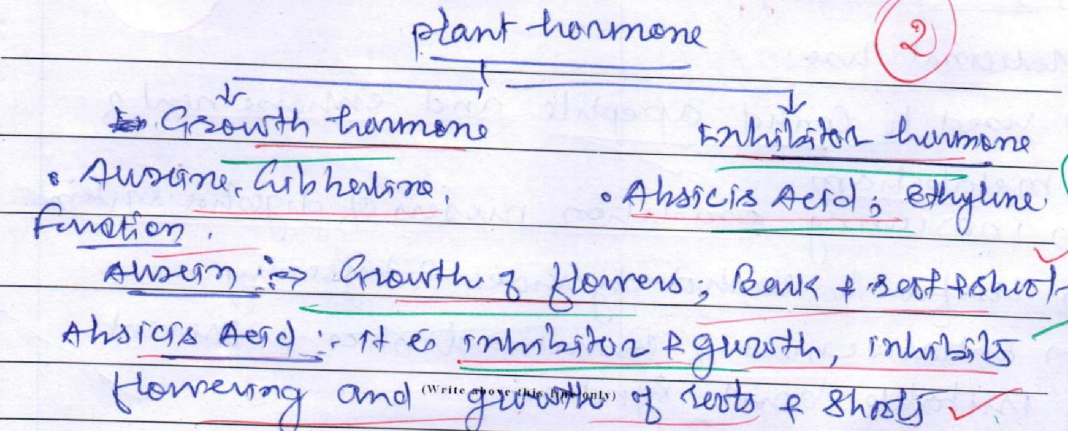 plant hormone
2
Growth hormone
Inhibitor hormone
• Auxine, Gibherline
• Absicis Acid; ethyline
Function.
Auxin :-> Growth of flowers, Bark & root & shoot
Absicis Acid :- it is inhibitor & gurwth, inhibits
flowering and growth of roots & shoots
(Write above this line only)